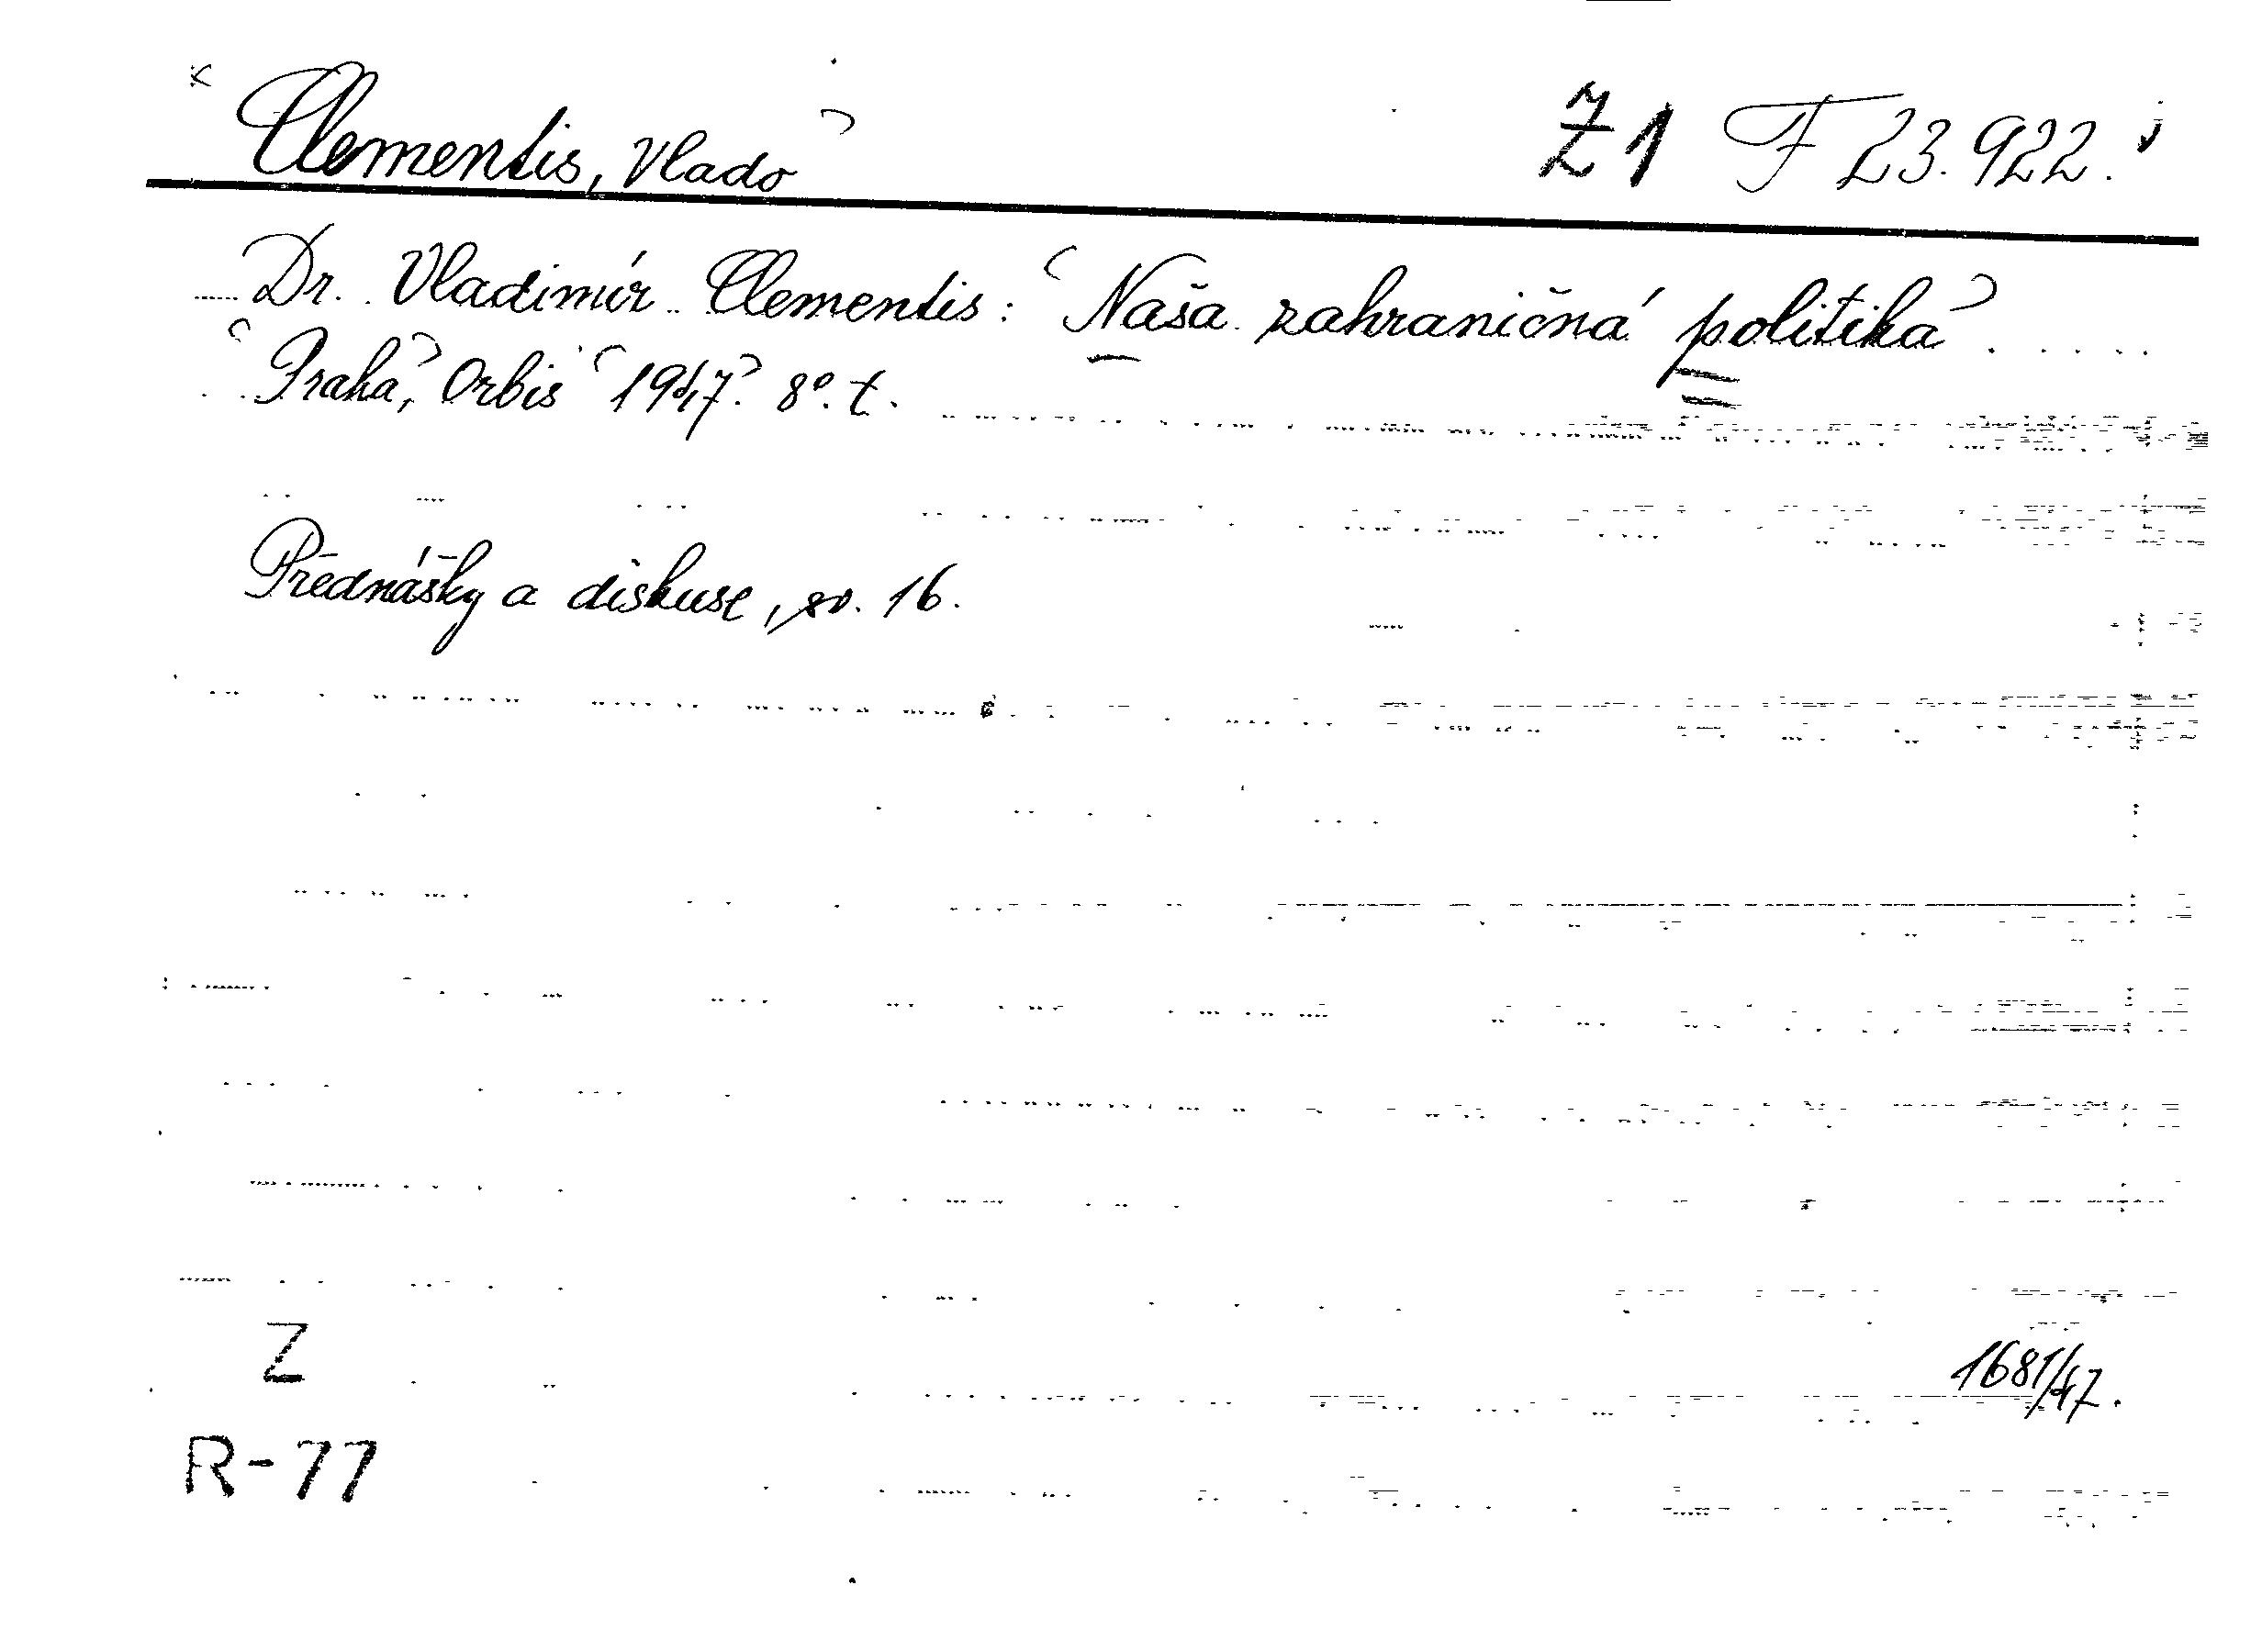 Clementis, Vlado Z1 F 23.922.
Dr. Vladimír Clementis: Naša zahraničná politika
Praha, Orbis 1947. 8°. t.
Přednášky a diskuse, sv. 16.
Z
1681/47.
R-77